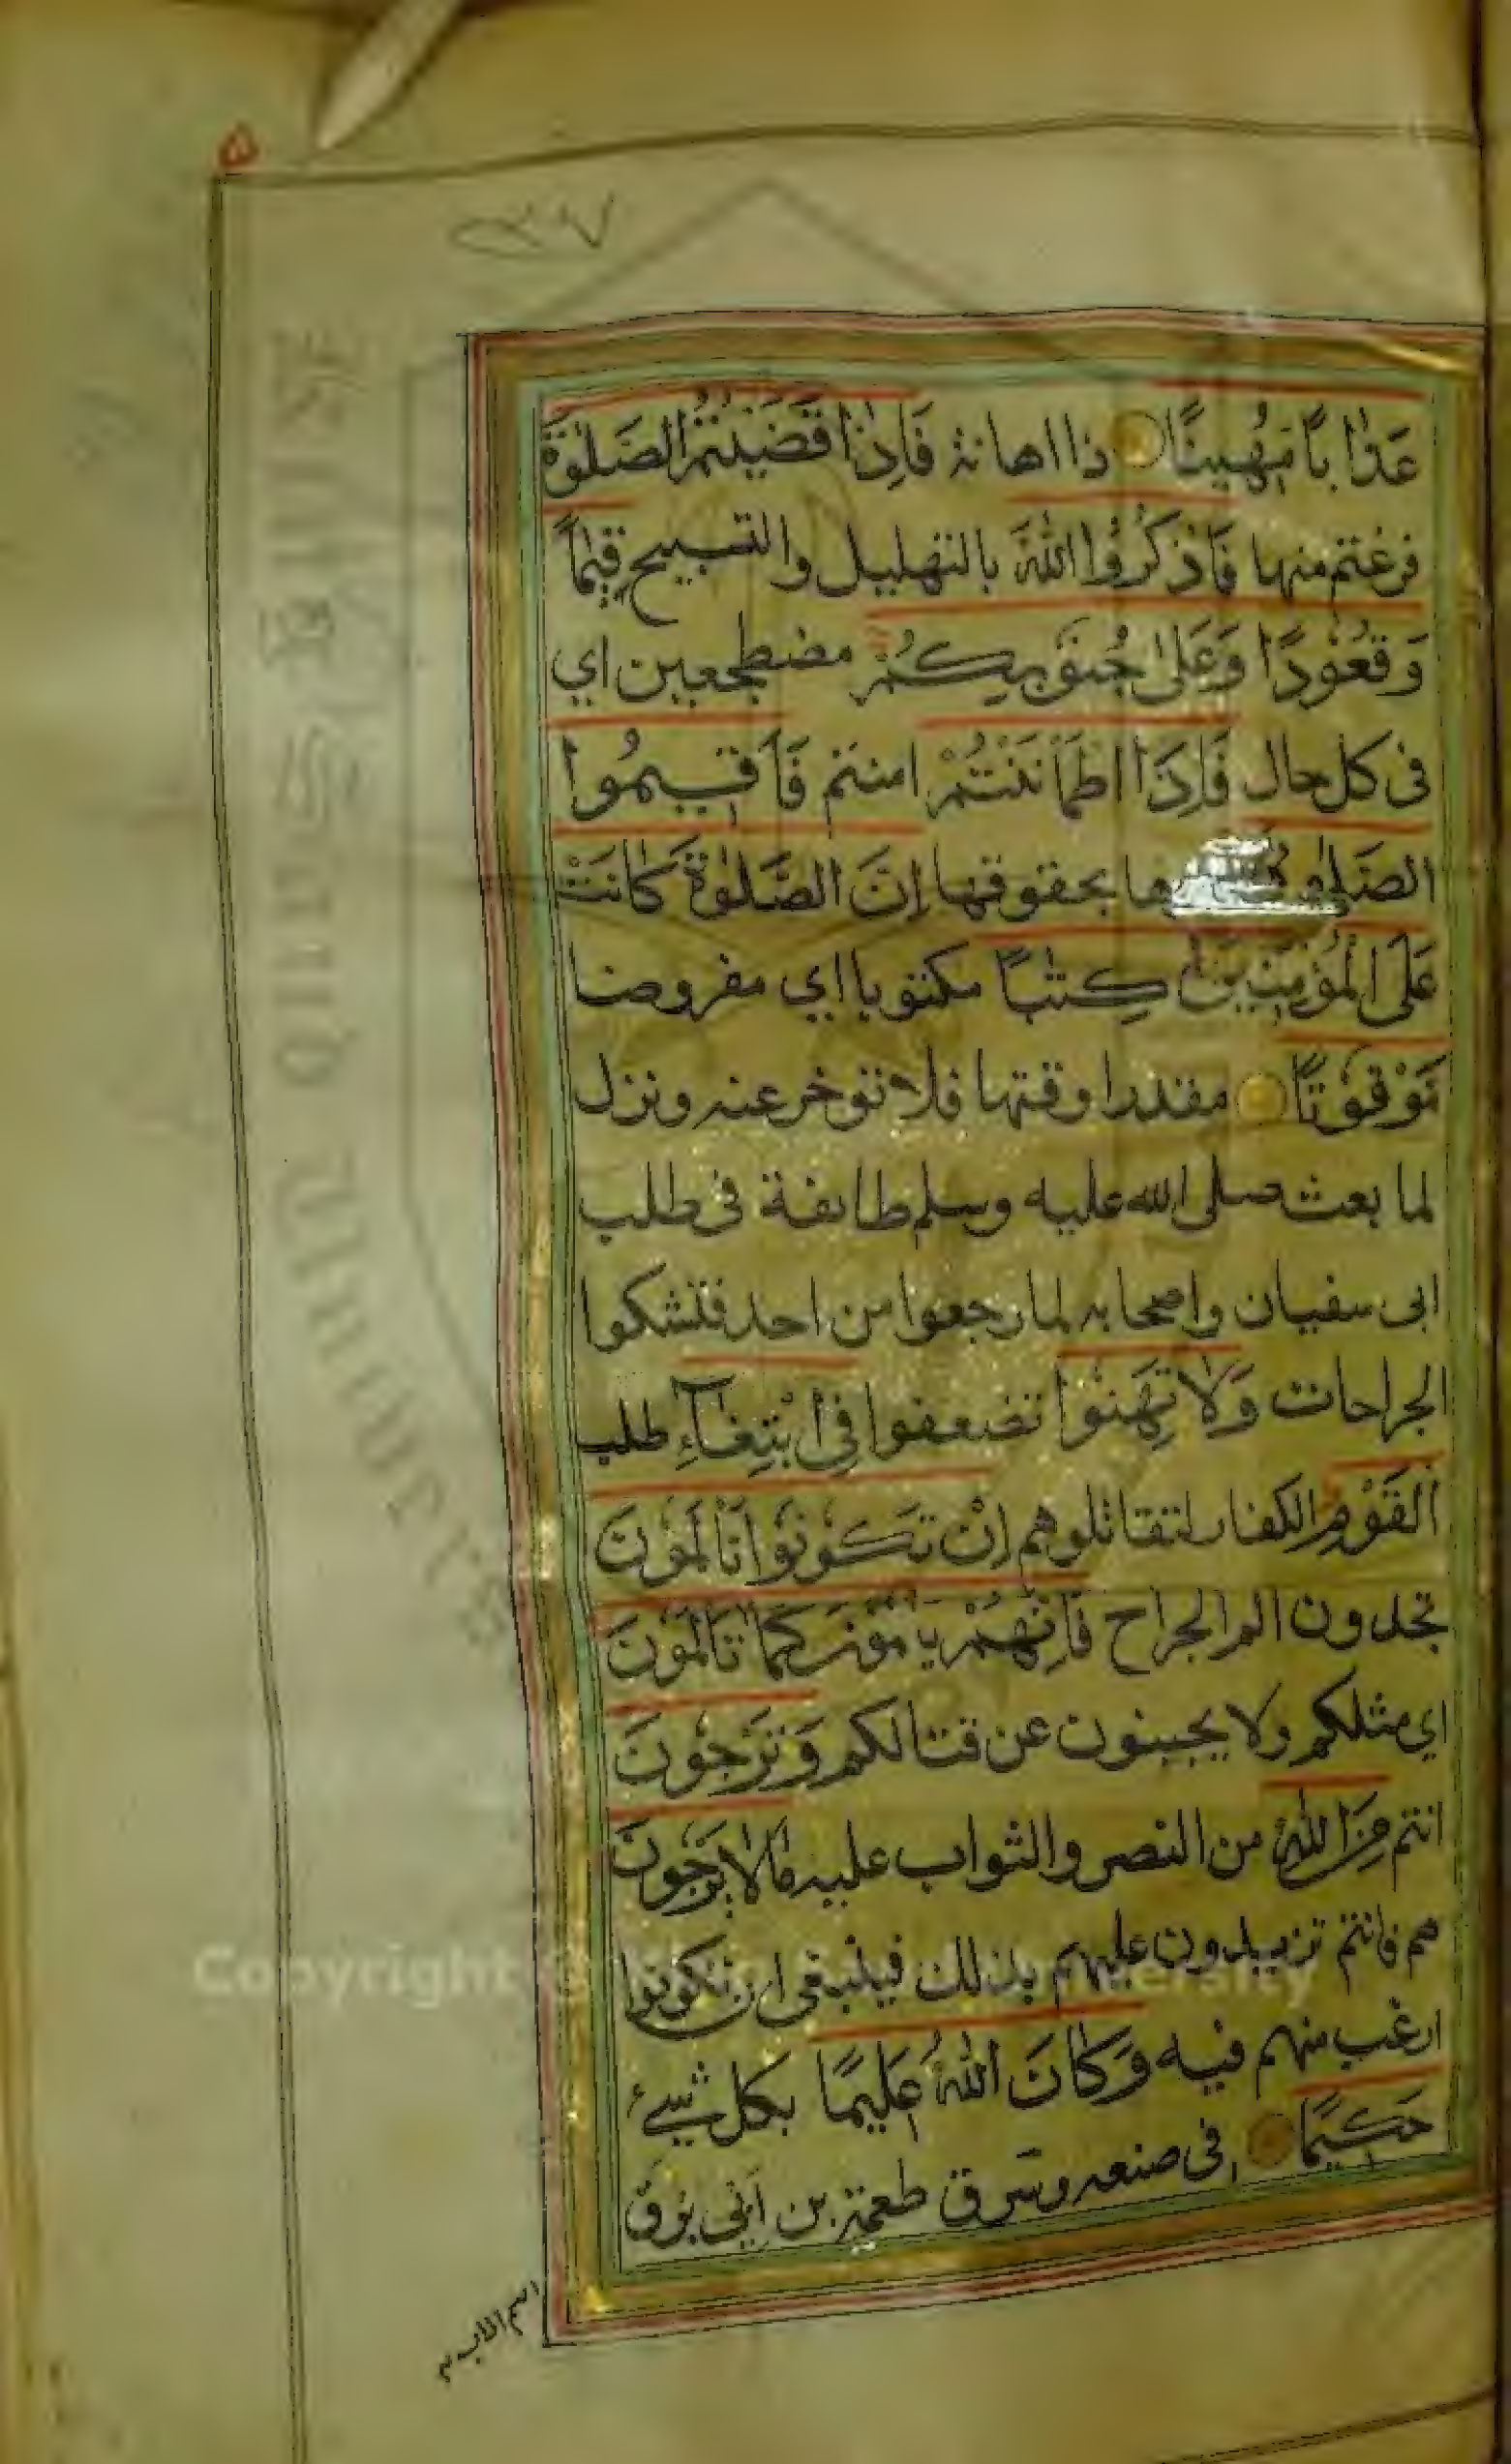 ٥
عَذَابًا مُهِينًا ذا اهانة فَاِذَا قَضَيْتُمُ الصَّلٰوةَ
فرغتم منها فَاذْكُرُوا اللّٰهَ بالتهليل والتسبيح قِيٰمًا
وَقُعُودًا وَعَلٰى جُنُوبِكُمْ مضطجعين اي
فى كل حال فَاِذَا اطْمَاْنَنْتُمْ امنتم فَاَقِيمُوا
الصَّلٰوةَ بحقوقها اِنَّ الصَّلٰوةَ كَانَتْ
عَلَى الْمُؤْمِنِينَ كِتٰبًا مكتوبا اي مفروضا
مَوْقُوتًا مقدرا وقتها فلا تؤخر عنه ونزل
لما بعث صلى الله عليه وسلم طائفة فى طلب
ابى سفيان واصحابه لما رجعوا من احد فتشكوا
الجراحات وَلَا تَهِنُوا تضعفوا فِى ابْتِغَآءِ طلب
الْقَوْمِ الكفار لتقاتلوهم اِنْ تَكُونُوا تَاْلَمُونَ
تجدون الم الجراح فَاِنَّهُمْ يَاْلَمُونَ كَمَا تَاْلَمُونَ
اي مثلكم ولا يجبنون عن قتالكم وَتَرْجُونَ
انتم مِنَ اللّٰهِ من النصر والثواب عليه مَا لَا يَرْجُونَ
هم فانتم تزيدون عليهم بذلك فينبغى ان تكونوا
ارغب منهم فيه وَكَانَ اللّٰهُ عَلِيمًا بكل شيء
حَكِيمًا فى صنعه وسرق طعمة بن اَبَى
Copyright © University